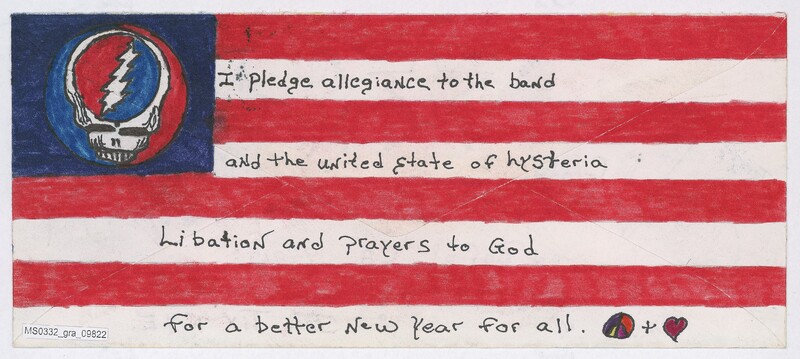 I pledge allegiance to the band
and the united state of hysteria
Libation and prayers to God
For a better New Year for all. +
MS0332_gra_09822